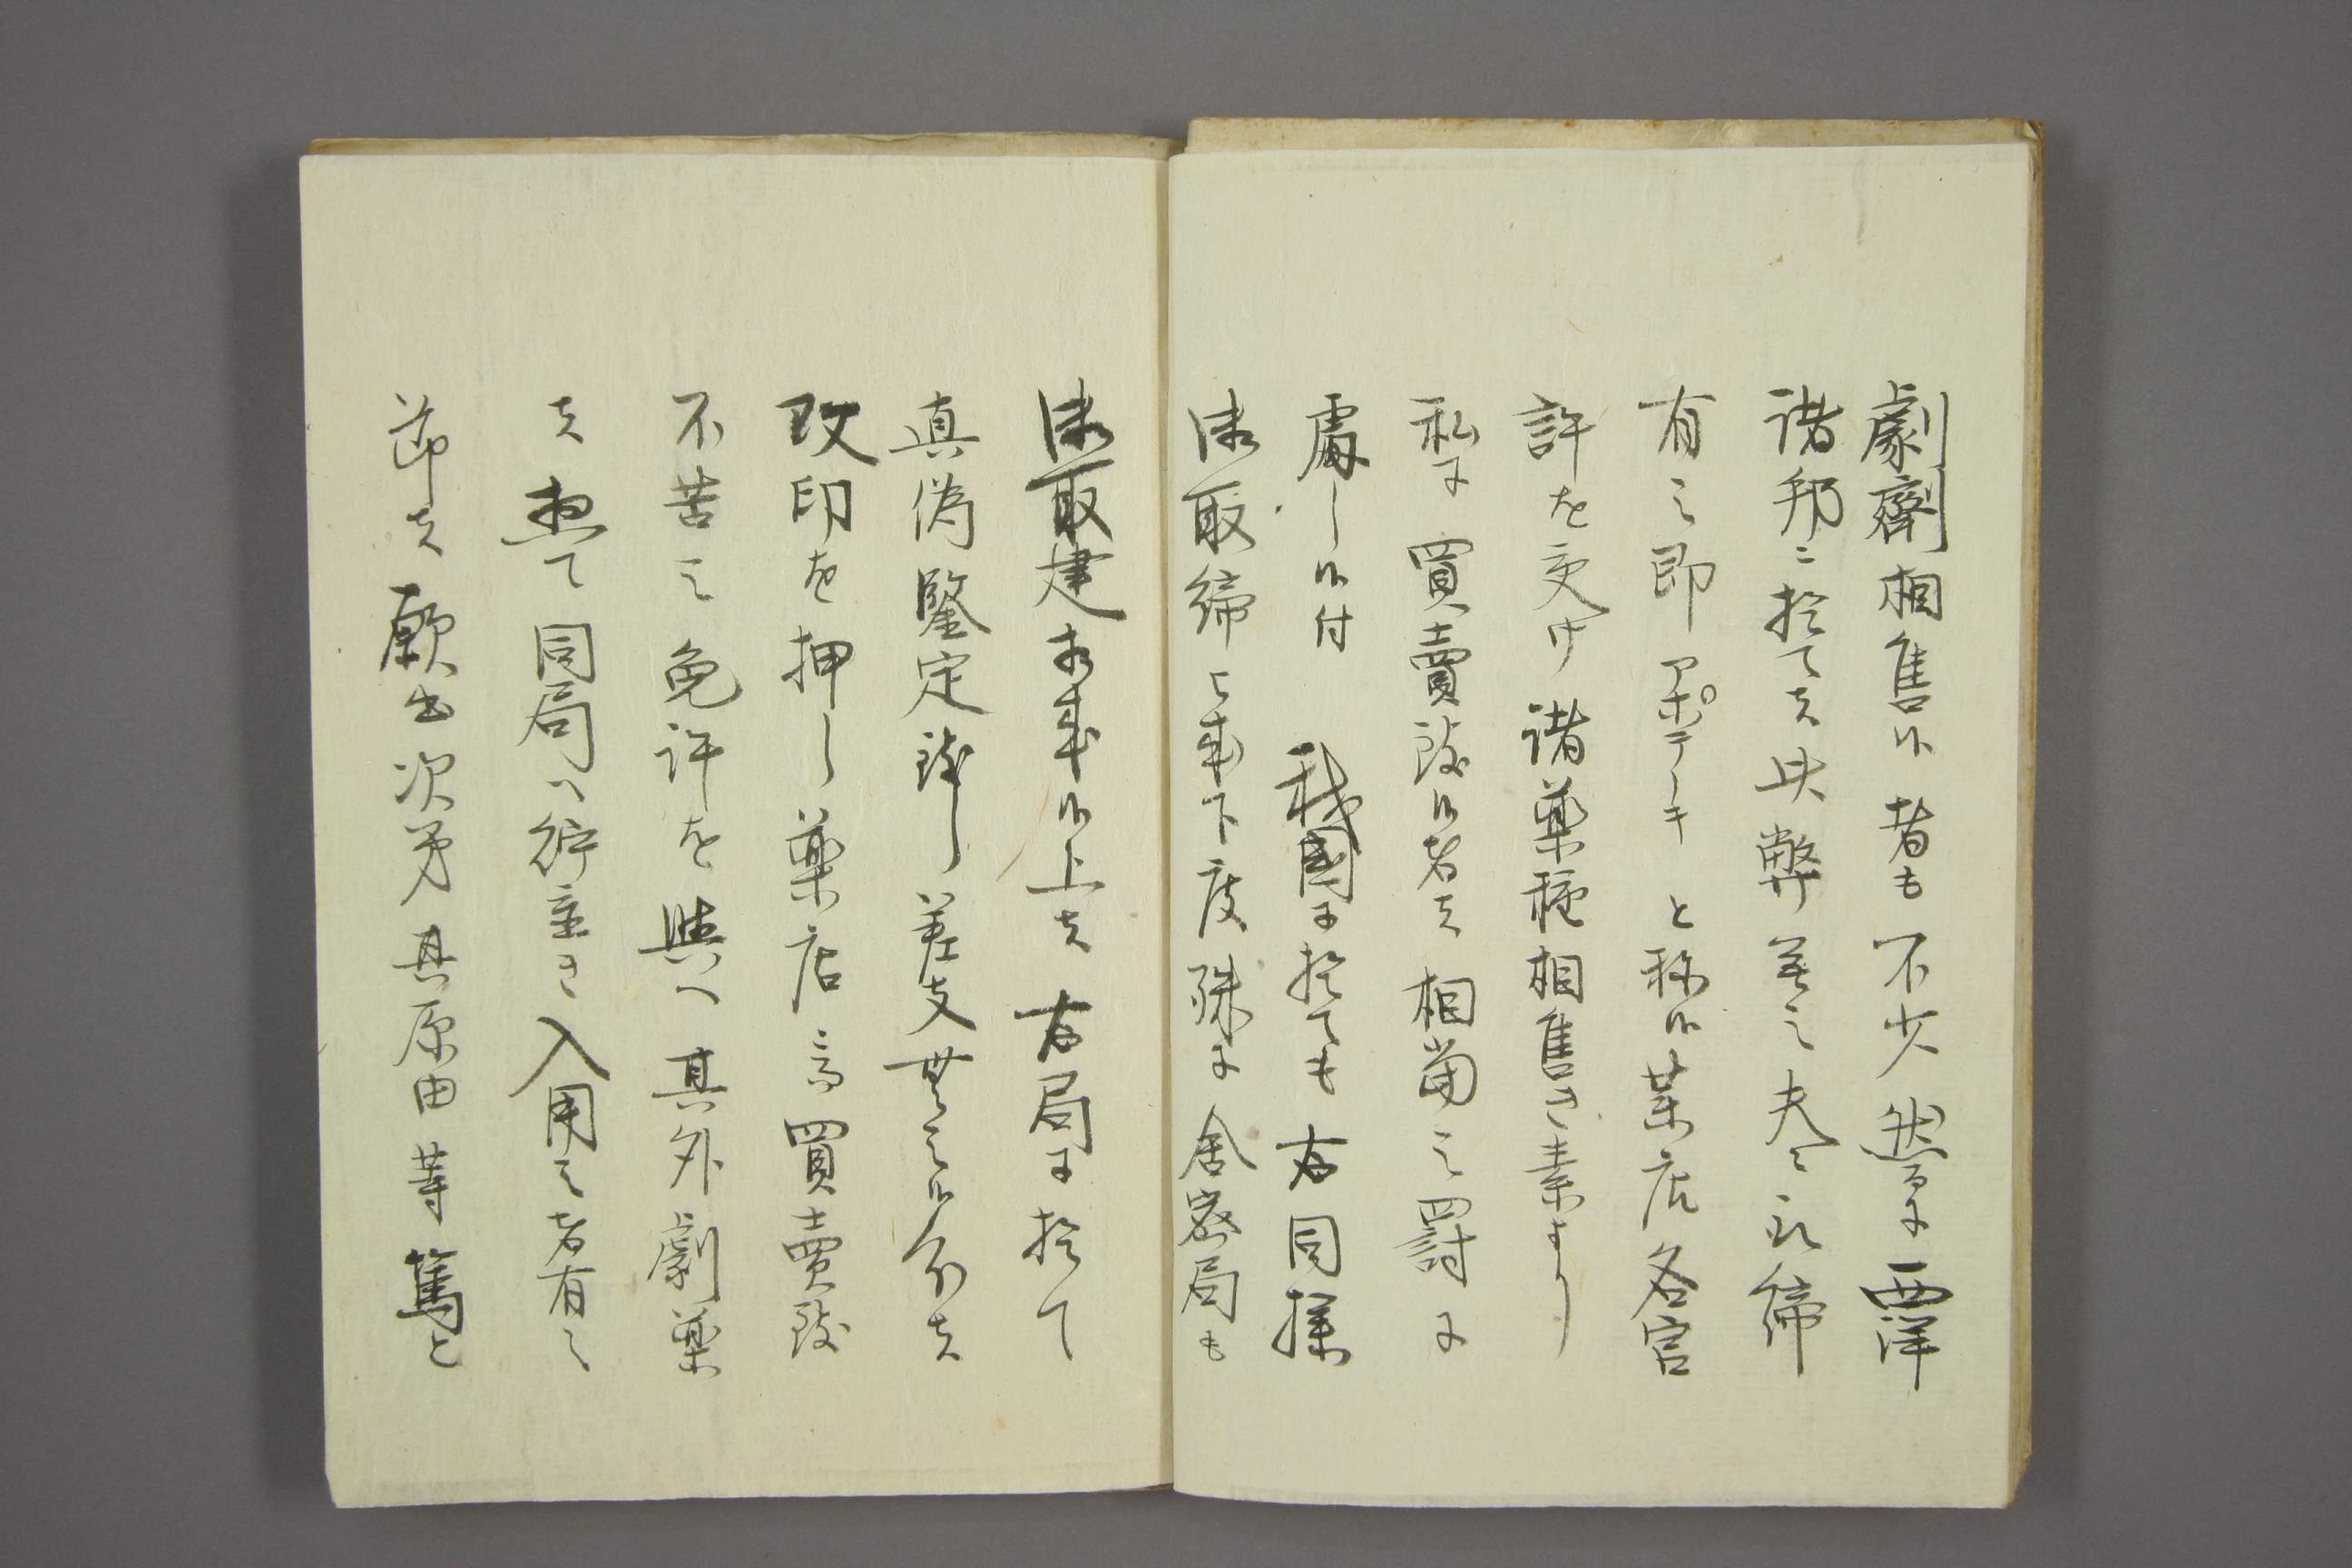 劇劑相售候者も不少然るに西洋
諸邦ニ於て者此弊無之夫々取締
有之即アポテーキと称候薬店各官
許を受け諸薬種相售き素より
私に買賣致候者者相當之罰に
處し候付我國に於ても右同様
御取締ニ相成下度殊に舎密局も
御取建相成候上者右局に於て
真偽鑒定致し差支無之候分者
改印を押し薬店ニ而買賣致
不苦之免許を與へ其外劇薬
者惣て同局へ貯置き入用之者有之
節者願出次第其原由等篤と